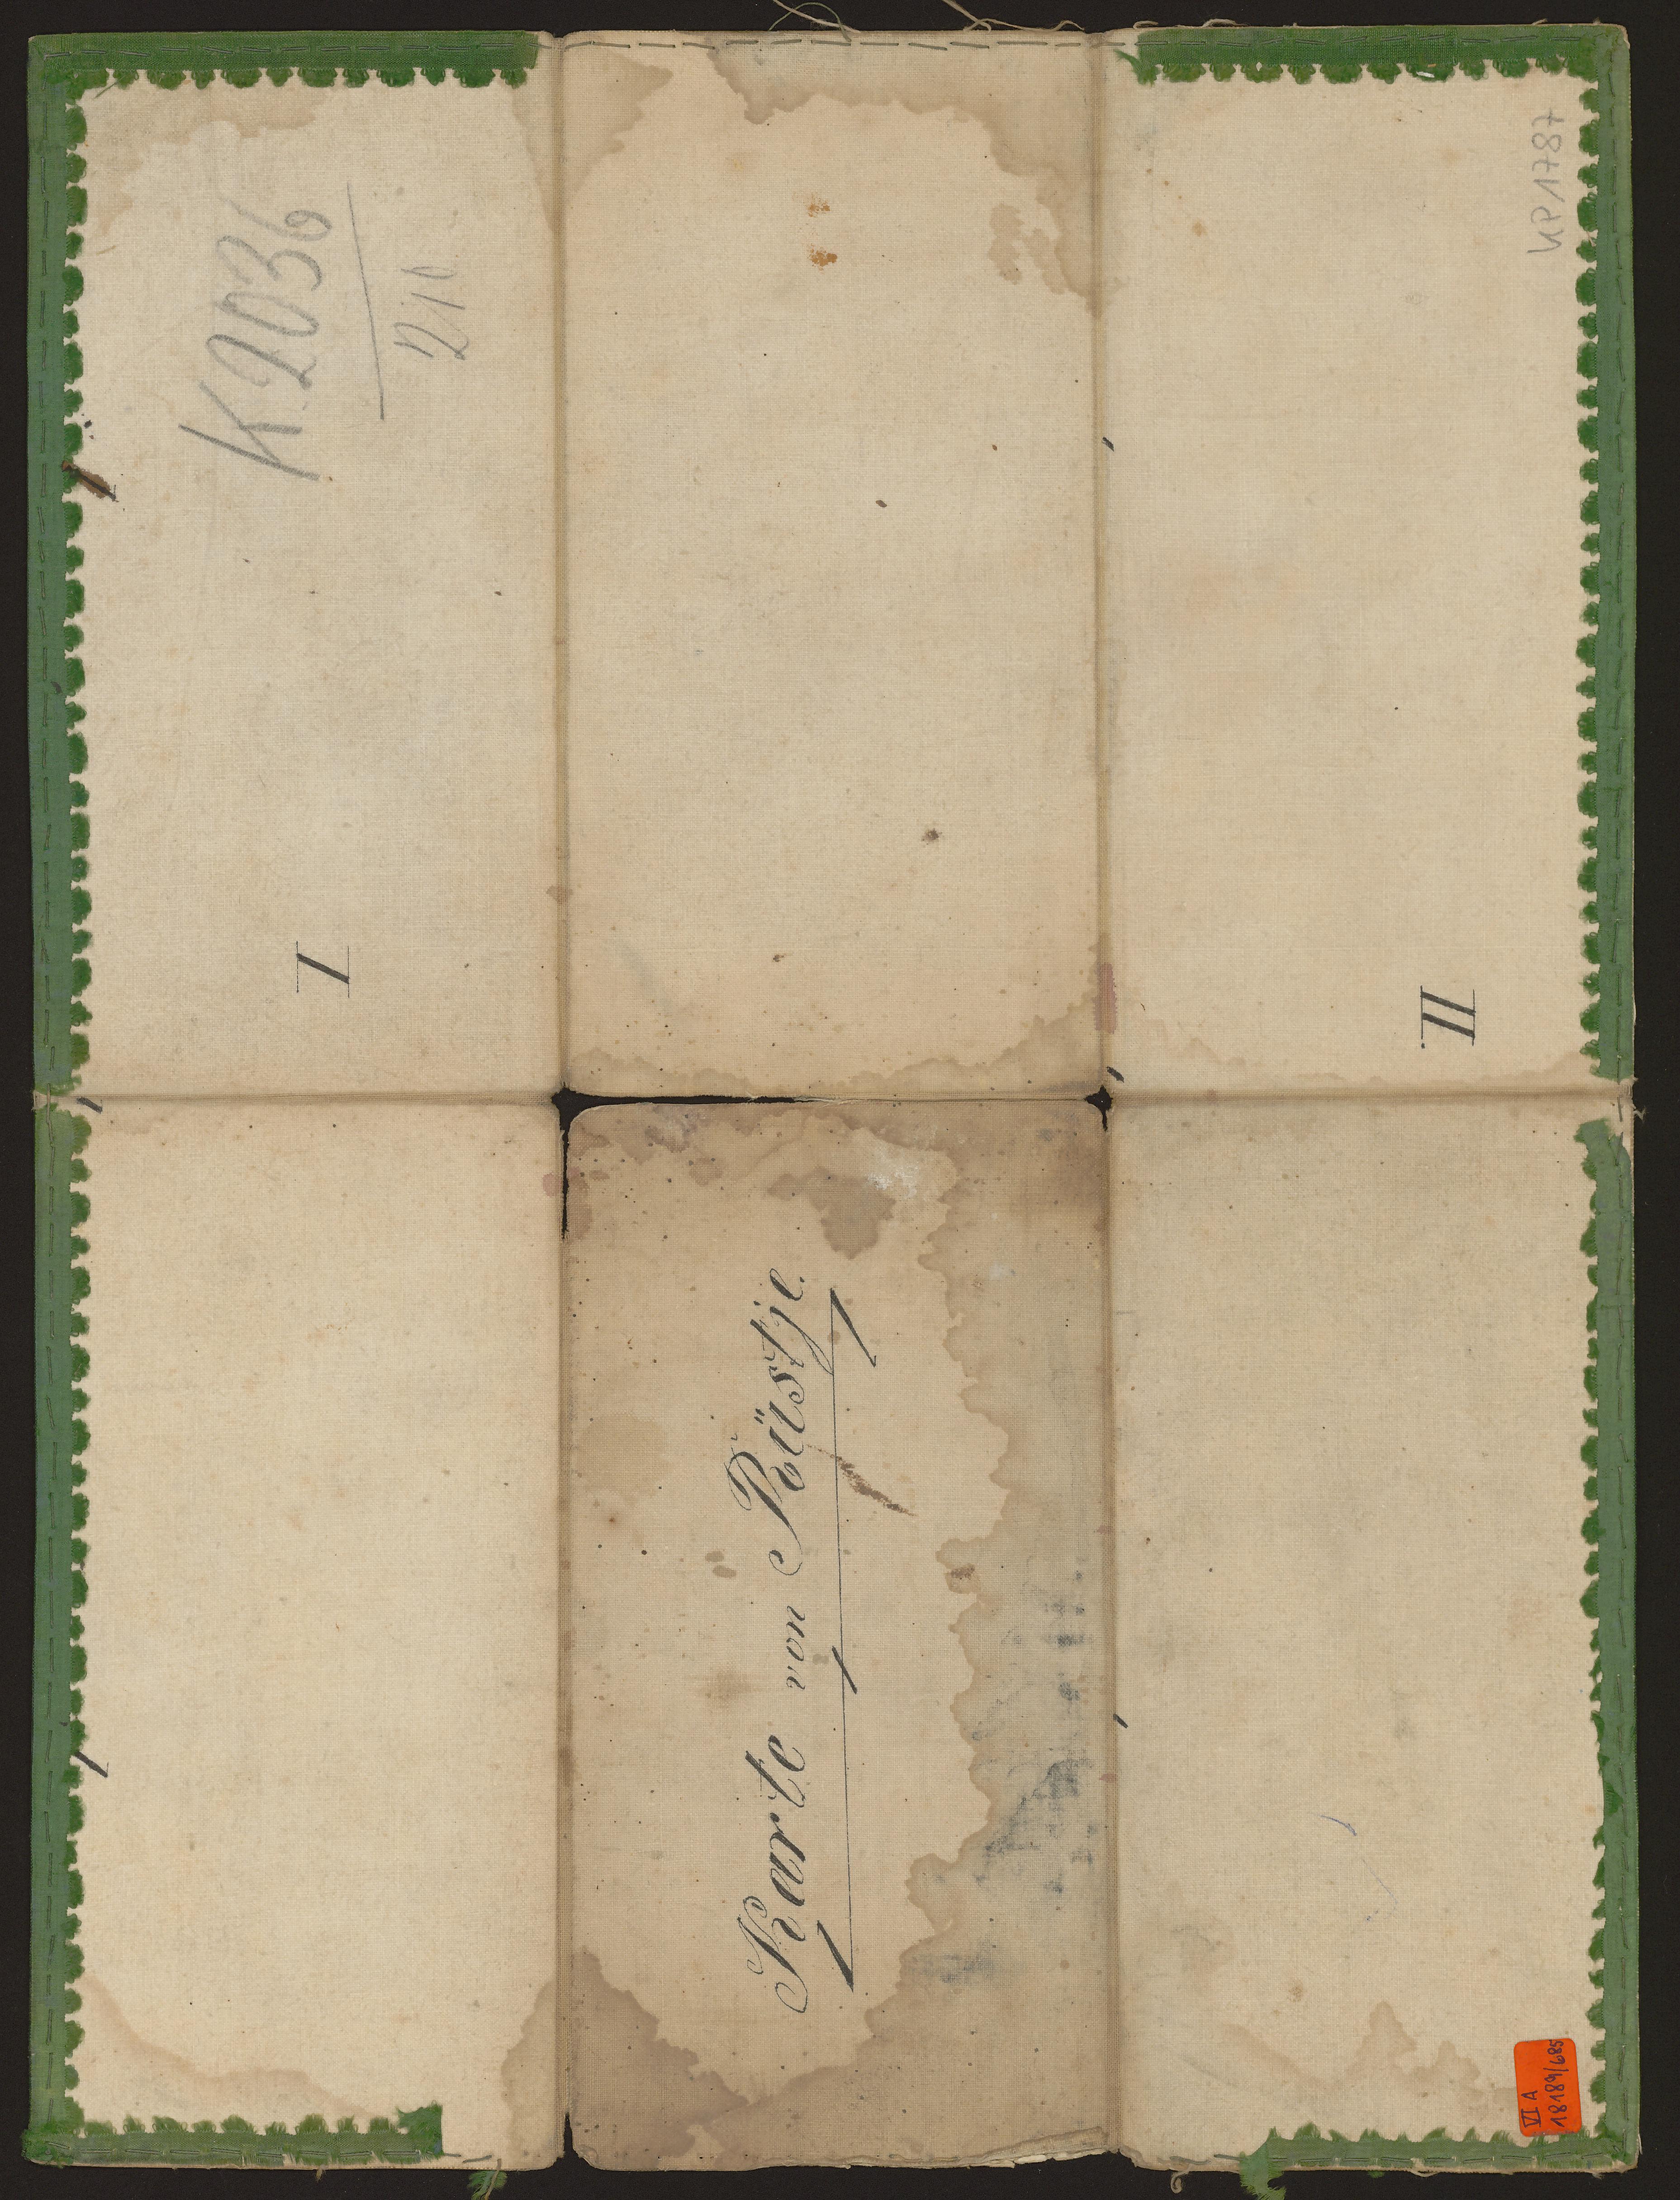 K 2036
210
KP1787
I
II.
Karte von Poüstje.
VI A
18189/685